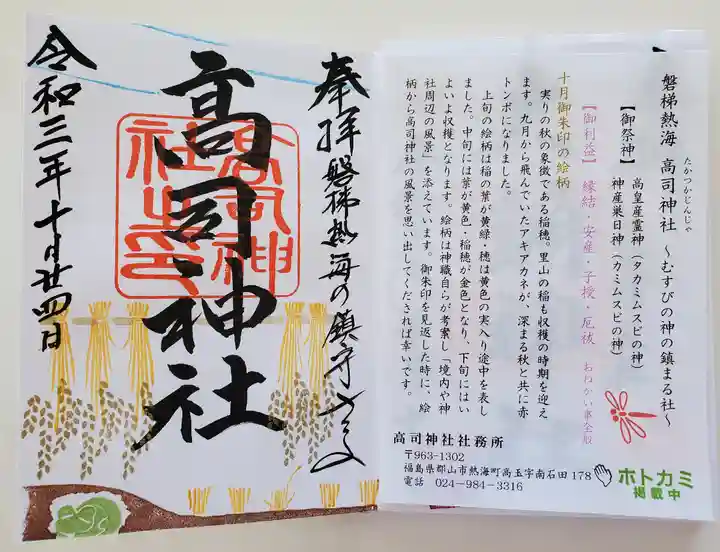 奉拝 磐梯熱海の鎮守さま
高司神社
高司神社之印
令和三年十月廿四日
磐梯熱海 高司神社 ～むすびの神の鎮まる社～
たかつかじんじゃ
【御祭神】 高皇産霊神（タカミムスビの神）
神産巣日神（カミムスビの神）
【御利益】 縁結・安産・子授・厄祓 おねがい事全般
十月御朱印の絵柄
実りの秋の象徴である稲穂。里山の稲も収穫の時期を迎え
ます。九月から飛んでいたアキアカネが、深まる秋と共に赤
トンボになりました。
上旬の絵柄は稲の葉が黄緑・穂は黄色の実入り途中を表し
ました。中旬には葉が黄色・稲穂が金色となり、下旬にはい
よいよ収穫となります。絵柄は神職自らが考案し「境内や神
社周辺の風景」を添えています。御朱印を見返した時に、絵
柄から高司神社の風景を思い出してくだされば幸いです。
高司神社社務所
〒963-1302
福島県郡山市熱海町高玉字南石田 178
電話 024-984-3316
ホトカミ
掲載中